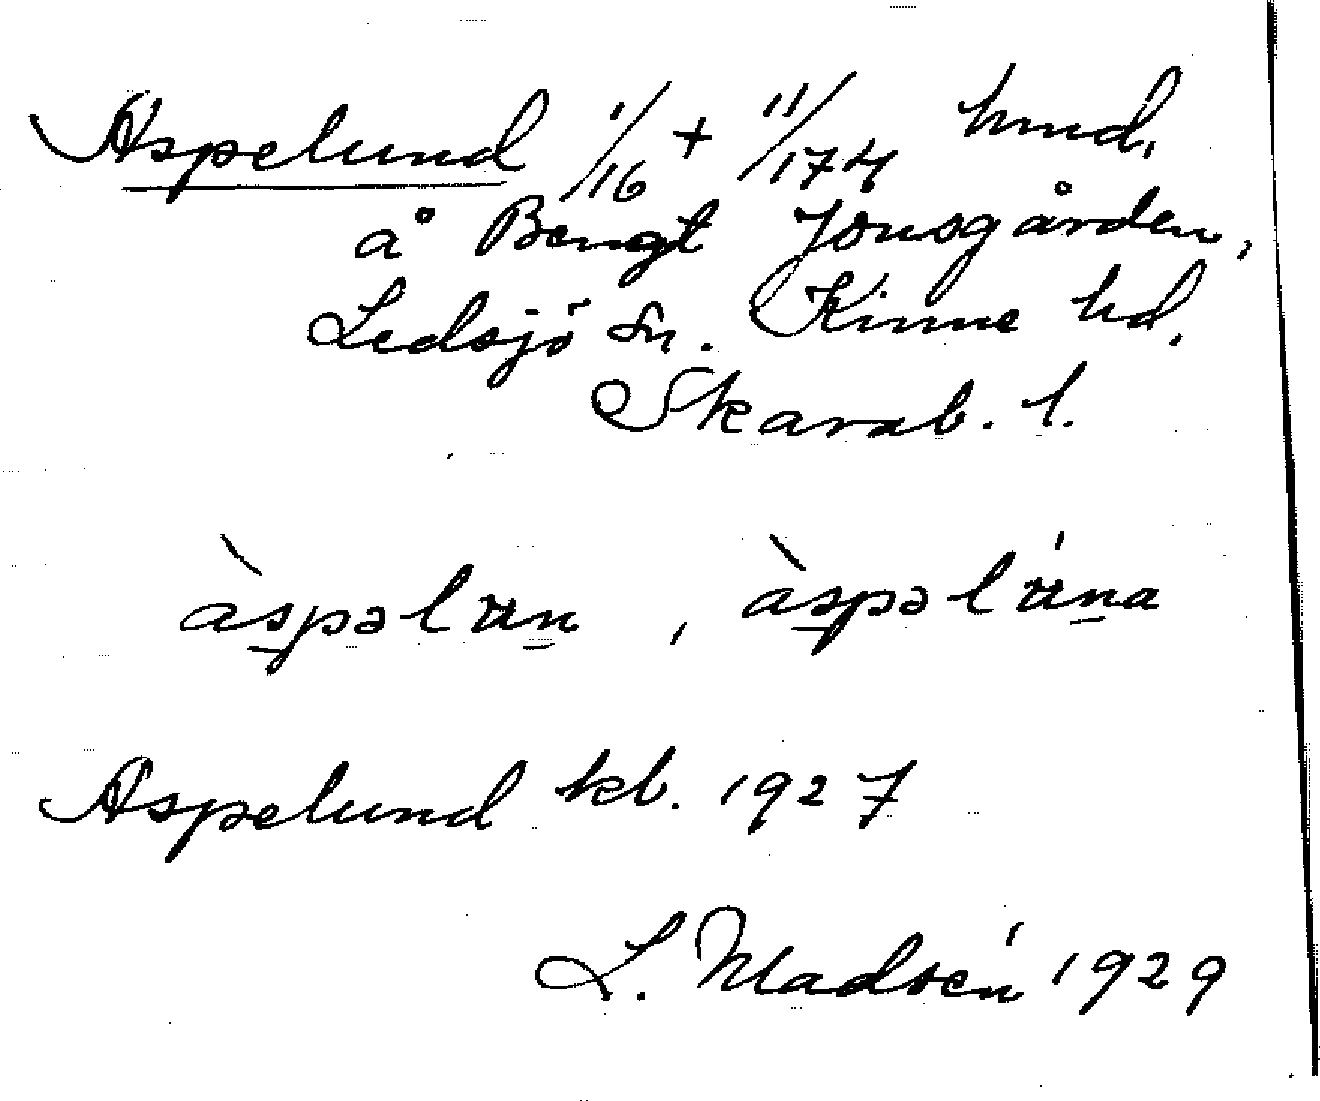 Aspelund 1/16 + 11/174 hmd.
å Bengt Jonsgården,
Ledsjö sn. Kinne hd.
Skarab. l.
àspəlun, àspəluna
Aspelund kb. 1927
L. Madsén 1929